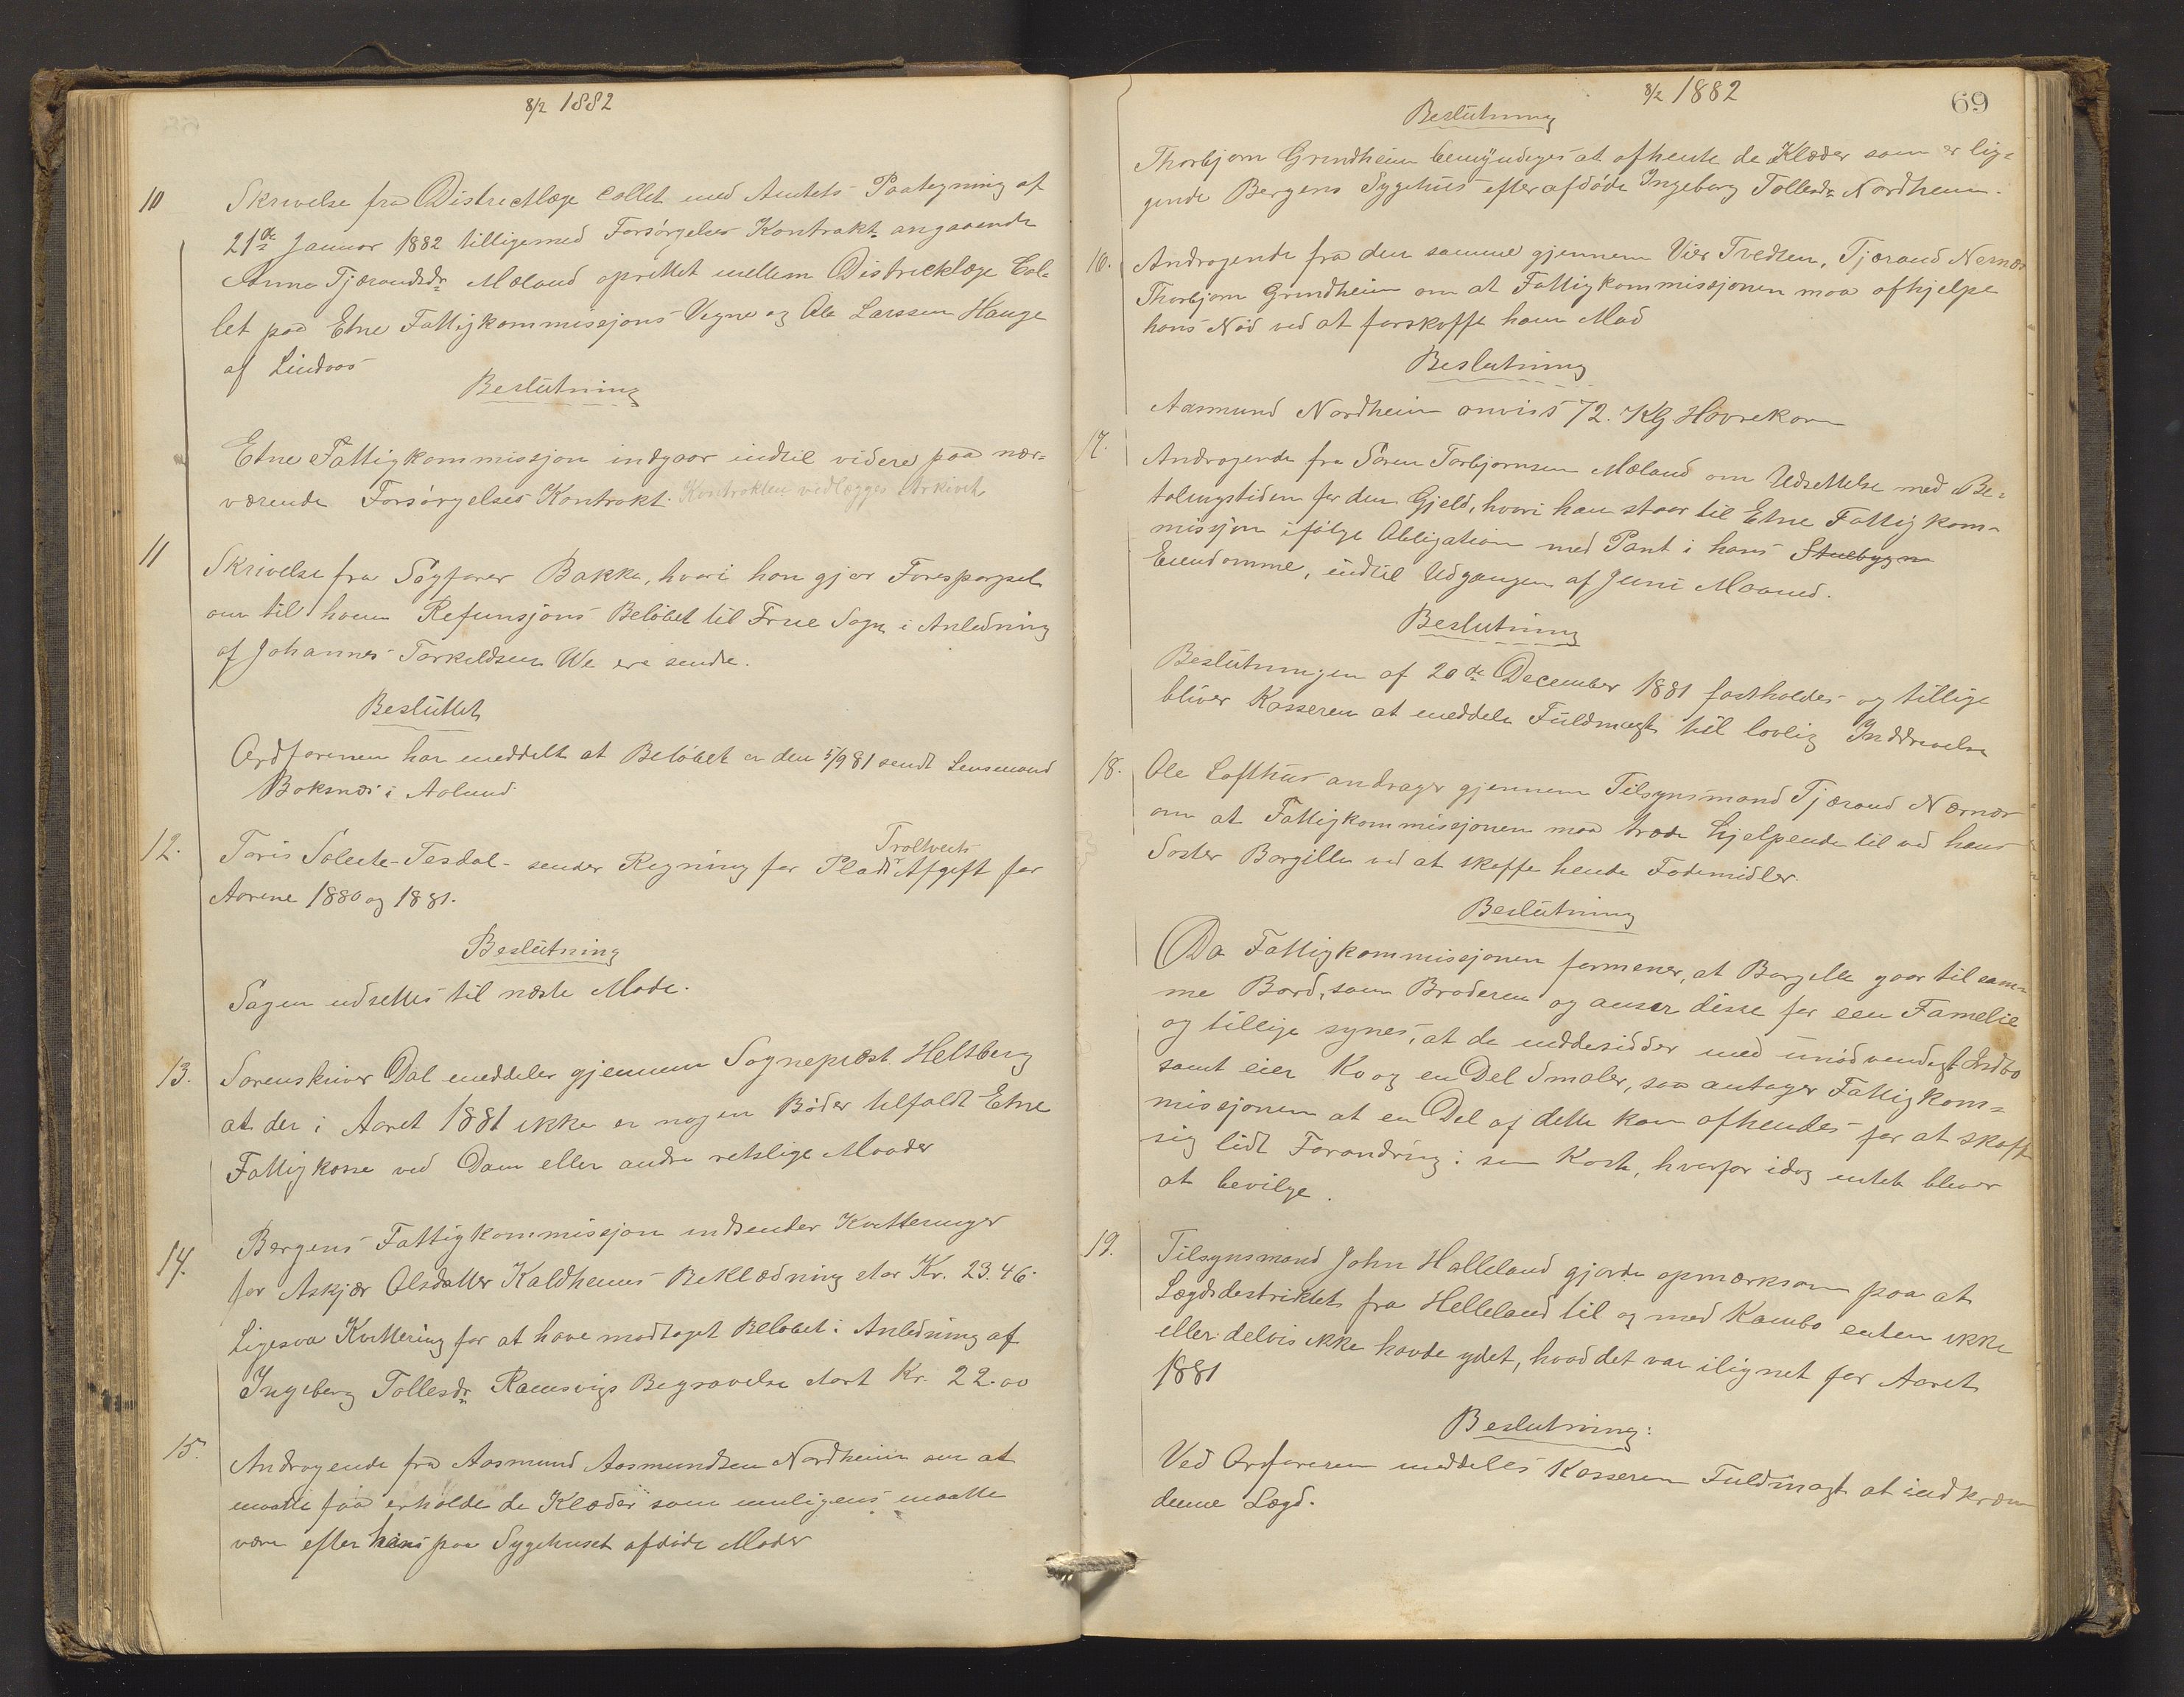 8/2 1882
10 Skrivelse fra Distrectlæge Collet med Amtets Paategning af
21de Januar 1882 tilligemed Forsörgelses Kontrakt angaaende
Anna Tjærandsdr Mæland oprettet mellem Districklæge Col-
let paa Etne Fattigkommissjons Vegne og Ole Larssen Hauge
af Lindaas
Beslutning
Etne Fattigkommissjon indgaar indtil videre paa nær-
værende Forsörgelses Kontrakt. Kontrakten vedlægges Arkivet
11 Skrivelse fra Sagförer Bakka, hvori han gjør Forespørgsel
om til hvem Refunsjons Belöbet til Frue Sogn i Anledning
af Johannes Torkeldsen We ere sendte.
Besluttet
Ordførenen har meddelt at Belöbet er den 5/9 81 sendt Lensmand
Boksnæs i Aalund
12. Toris Soleite-Tesdal- sender Regning for Plads Troltveits Afgift for
Aarene 1880 og 1881.
Beslutning
Sagen udsettes til næste Møde.
13. Sorenskriver Dal meddeler gjennem Sogneprest Heltberg
at der i Aaret 1881 ikke er nogen Böder tilfaldt Etne
Fattigkasse ved Dom eller andre retslige Maader
14. Bergens Fattigkommissjon indsender Kvitteringer
for Askjær Olsdatter Kaldheims Beklædning stor Kr. 23.46.
Ligesaa Kvittering for at have modtaget Beløbet i Anledning af
Ingeborg Tollesdr Ramsvigs Begravelse stort Kr. 22.00
15. Andragende fra Aasmund Aasmundsen Nordheim om at
maatte faa erholde de Klæder som muligens maatte
være efter hans paa Sygehuset afdöde Moder
8/2 1882
69
Beslutning
Thorbjørn Grindheim bemyndiges at afhente de Klæder som er lig-
gende Bergens Sygehus efter afdöde Ingeborg Tollesdr Nordheim.
16. Andragende fra den samme gjennem Vier Tvedten, Tjærand Nernæs
Thorbjørn Grindheim om at Fattigkommissjonen maa afhjelpe
hans Nöd ved at forskaffe ham Mad
Beslutning
Aasmund Nordheim anvist 72. Kg Havrekorn
17. Andragende fra Søren Torbjørnsen Mæland om Udsettelse med Be-
talingstiden for den Gjeld, hvori han staar til Etne Fattigkom-
missjon ifölge Obligation med Pant i hans Stuebygn
Eiendomme, indtil Udgangen af Juni Maaned.
Beslutning
Beslutningen af 20de December 1881 fastholdes og tillige
bliver Kasseren at meddele Fuldmagt til lovlig Inddrivelse
18. Ole Lofthus andrager gjennem Tilsynsmand Tjærand Nærnæs
om at Fattigkommissjonen maa træde hjelpende til ved hans
Søster Borgille ved at skaffe hende Fødemidler.
Beslutning
Da Fattigkommissjonen formener, at Borgille gaar til sam-
me Bord, som Broderen og anser disse for een Famelie
og tillige synes, at de inddesidder med unödvendigt Indbo
samt eier Ko og en Del Smaler, saa antager Fattigkom-
missjonen at en Del af dette kan afhendes for at skaffe
sig lidt Forandring i sin Kost, hvorfor idag intet bliver
at bevilge.
19. Tilsynsmand John Halleland gjorde opmærksom paa at
Lægdsdestriktet fra Helleland til og med Kambo enten ikke
eller delvis ikke havde ydet, hvad det var ilignet for Aaret
1881
Beslutning:
Ved Ordføreren meddeles Kasseren Fuldmagt at indkræve
denne Lægd.